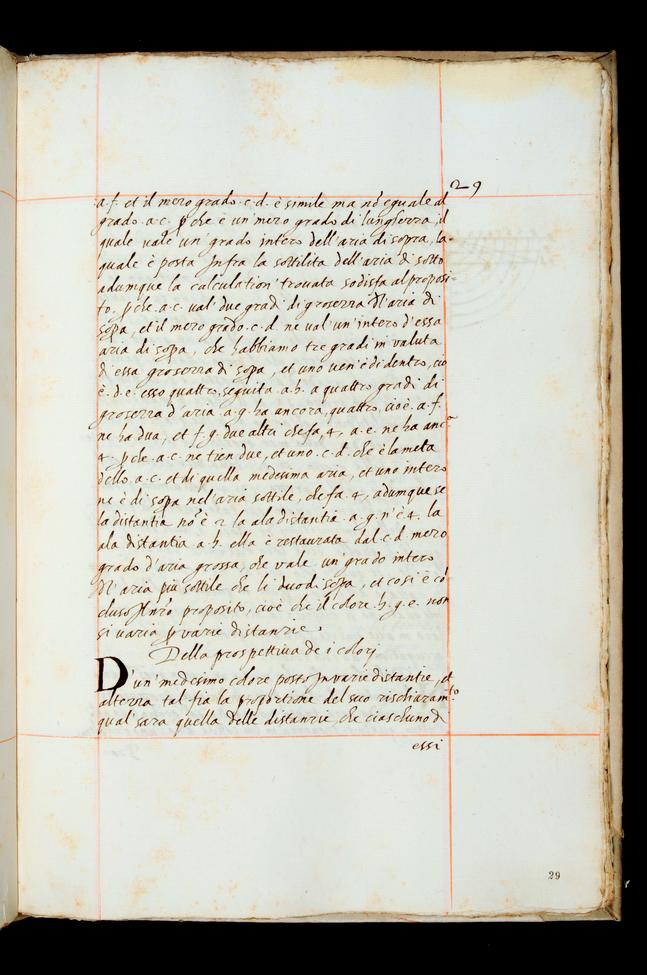 29
a.f. et il mezo grado .c.d. è simile ma nō eguale al
grado .a.c. ꝑche è un' mezo grado di lunghezza, il
quale vale un' grado intero dell'aria di sopra, la
quale è posta infra la sottilita dell'aria di sotto
adumque la calculation' trovata sodisfa al proposi-
to, ꝑche .a.c. val' due gradi di grosezza dl'aria di
sopa, et il mezo grado .c.d. ne val' un' intero d'essa
aria di sopa, che habbiamo tre gradi in valuta
di essa grosezza di sopa, et uno ven'è di dentro, cio
è .d.e. esso quattro, seguita .a.h. a quattro gradi di
grosezza d'aria .a.g. ha ancora, quattro, cioè .a.f.
ne ha dua, et .f.g. due altri che fa, 4, .a.e. ne ha anc
4. ꝑche .a.c. ne tien due, et uno .c.d. che è la meta
dello .a.c. et di quella medesima aria, et uno intero
ne è di sopa nel'aria sottile, che fa .4, adumque se
la distantia .a.g. n'è 4. la
ala distantia .a.h. ella è restaurata dal .c.d. mezo
grado d'aria grossa, che vale un' grado intero
dl'aria più sottile che li di sopa, et cosi è cō
cluso il nrō proposito, cioè che il colore .h.g.e. non
si varia ꝑ varie distanzie.
Della prospettiva de i colorj
D'un' medesimo colore posto in varie distantie, et
altezza tal' fia la proportione del suo rischiaramto.
qual' sara quella delle distanzie, che ciaschuno d
essi
29